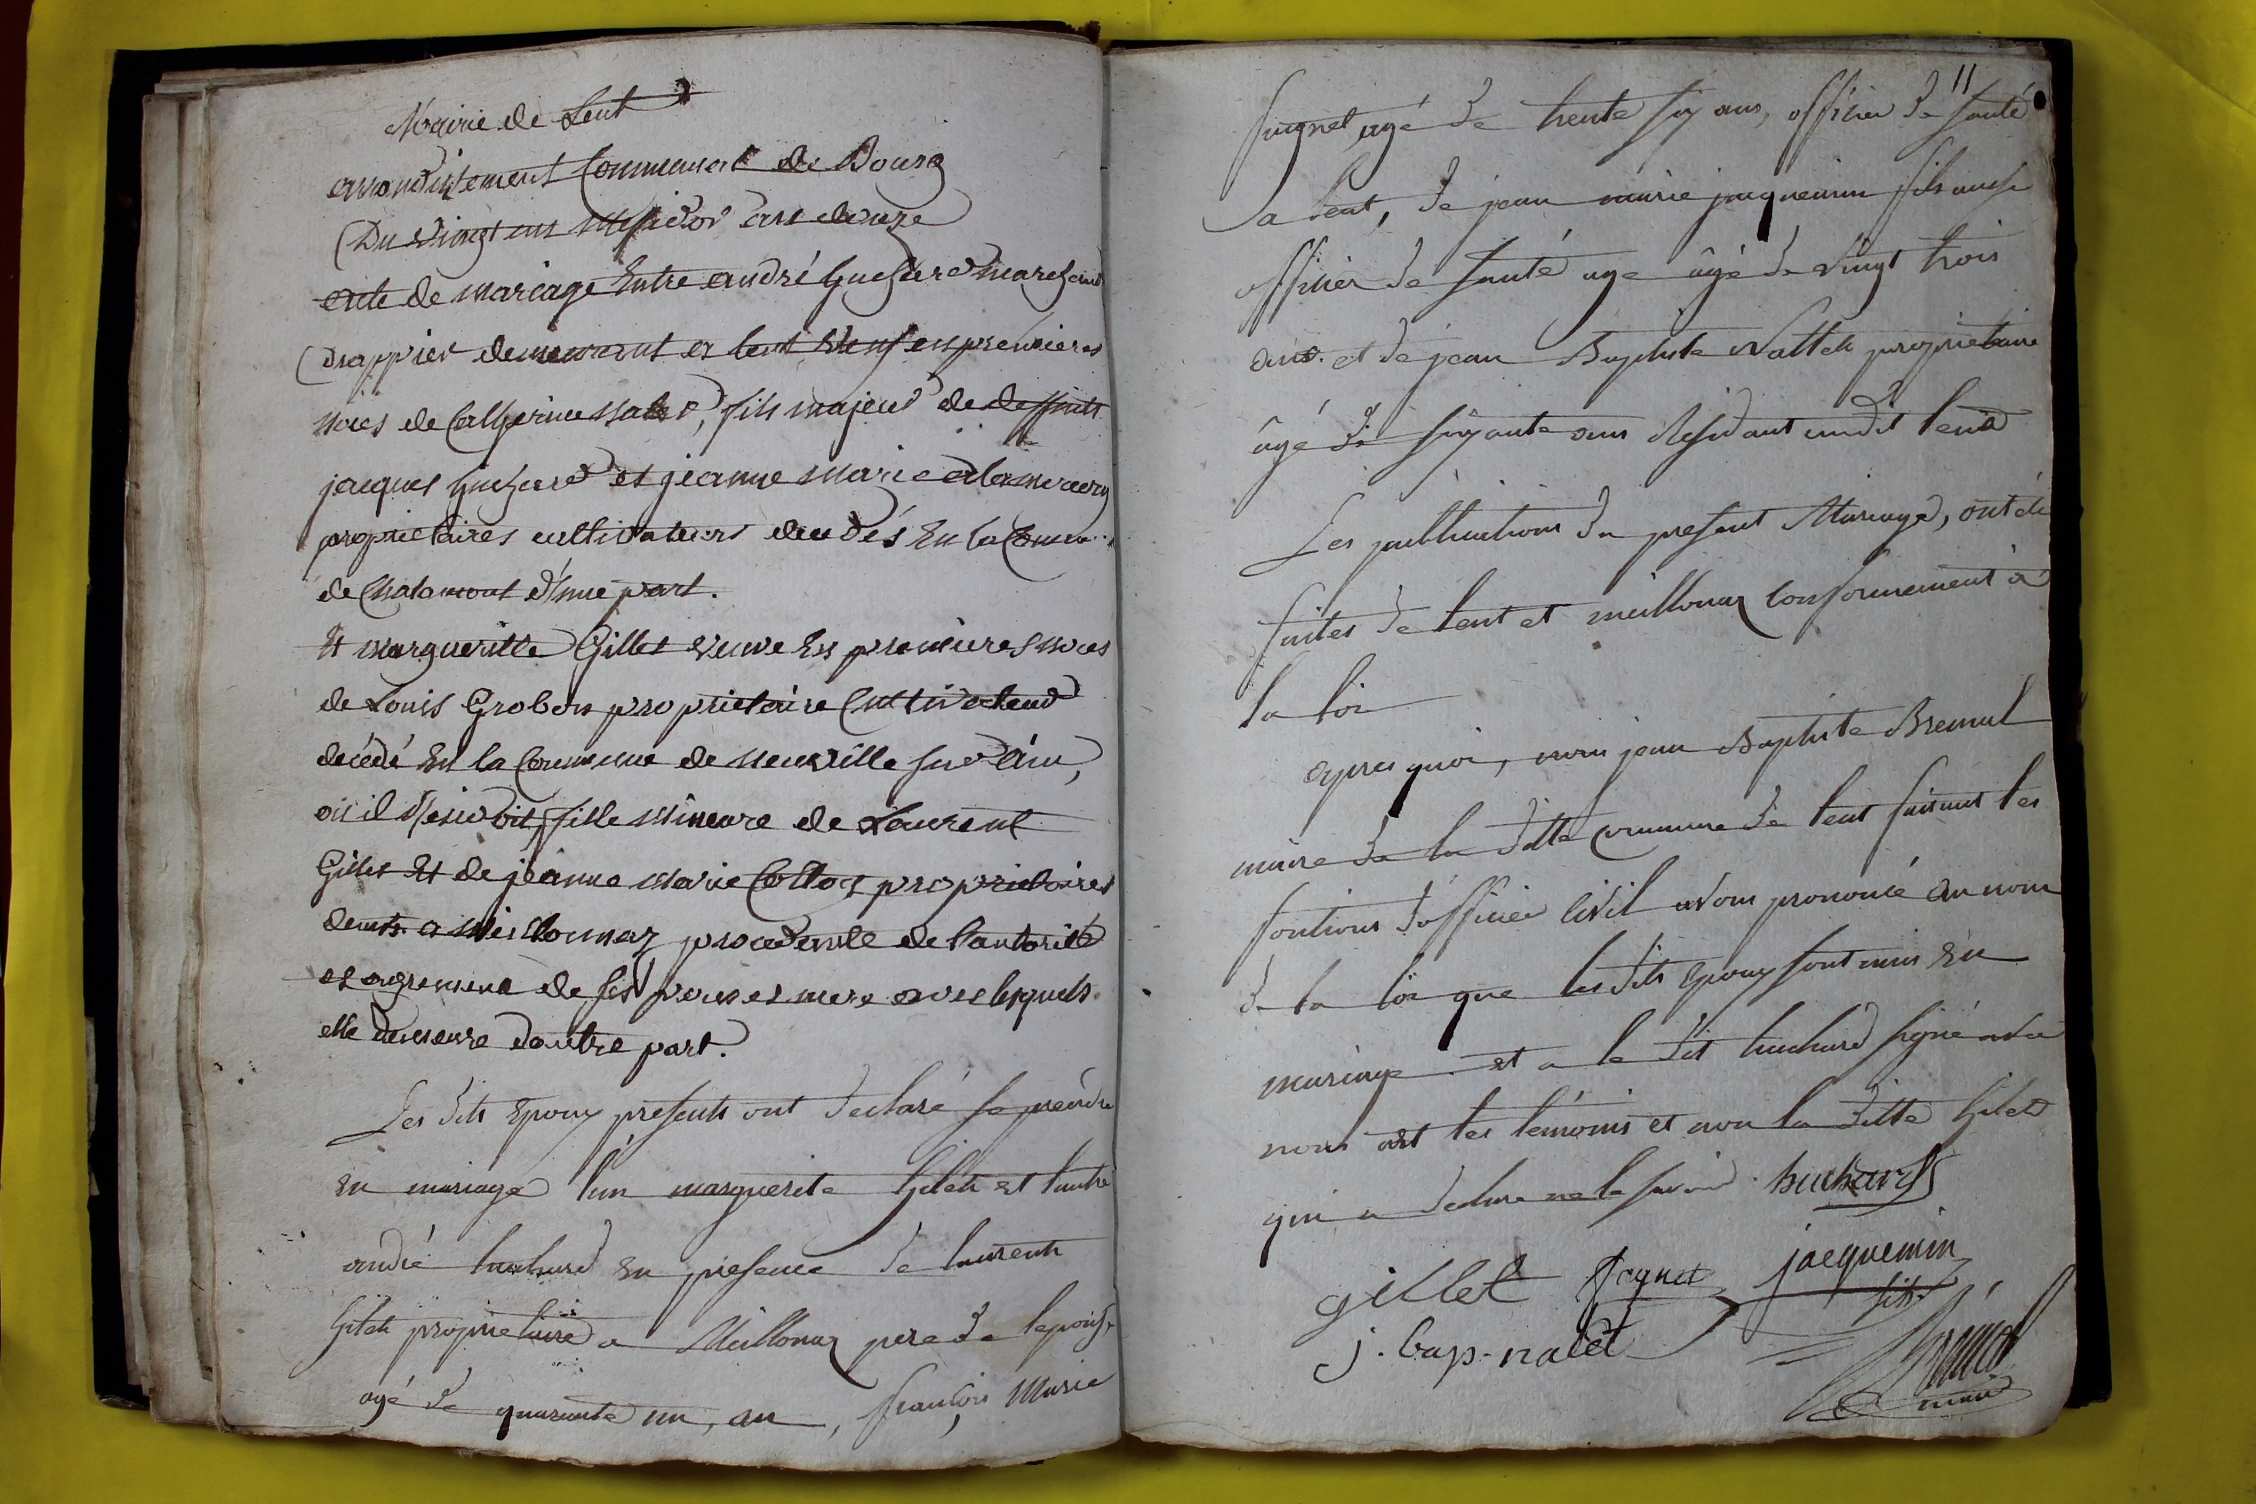 Mairie de Lent
arrondissement Communal de Bourg
Du vingt un Messidor an douze
acte de mariage Entre andré huchard marchand
drappier demeurant a Lent Veuf en premieres
noces de Catherine , fils majeur de deffunts
jacques huchard et jeanne marie
proprietaires cultivateurs decedés En la Commu..
de Chalamont d'une part.
Et margueritte Gillet veuve En premieres noces
de Louis Grobon proprietaire Cultivateur
décédé En la Commune de neuville sur ain,
où il résidoit, fille Mineure de Laurent
Gillet Et de jeanne marie proprietaires
demts a Meillonnaz procedante de lautorité
et agrement de ses peres et mere avec lesquels
elle demeure dautre part.
Les dits Epoux presents ont declaré se prendre
En mariage l'un marguerite Gilet et lautre
andré huchard En presence de laurent
Gilet proprietaire a Meillonaz pere de lepouse
agé de quarante un, an, françois Marie
11
fugnet, agé de trente six ans, officier de santé
a lent, de jean marie jaquemin fils aussi
officier de santé age âgé de vingt trois
ans. et de jean Baptiste Nallet proprietaire
âgé de soixante ans Residant audit lent
Les publications du present Mariage, ont été
faites de lent et meillonaz conformement à
la loi
apres quoi, nous jean Baptiste
maire de la ditte Commune de lent faisant les
fontions d'officier Civil avons prononcé au nom
de la loi que les dits Epoux sont unis En
mariage. et a le dit huchard signé avec
nous et les témoins et non la ditte Gilet
qui a declare ne le savoir. huchard
gillet jacquemin
fils
j. bap. nalet
maire